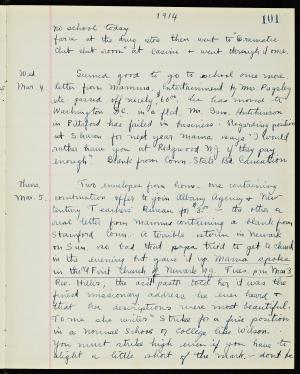 1914
101
no school today
at the drug store then went to "Dramatic
Club club room" at Casino & went through 1 one.
Wed.
Mar. 4
Seemed good to go to school once more
letter from Mamma, Entertainment by Mrs Pugsley
etc passed off nicely, he has moved to
Washington D.C. in a flat. Mr. Hutchinson
in Pittsford has failed in business - Regarding position
at S haven for next year Mama says "I would
rather have you at Ridgewood N.J. if they pay
enough" Blank from Conn. State Bd. Education
Thurs.
Mar 5.
Two envelopes from home one containing
combination offer to join Albany Agency &
Century Teachers' Bureau for $3.00 - the other a
real letter from Mamma containing a blank from
Stamford Conn. A terrible storm in Newark
on Sun. was bad tho papa tried to get to church
in the evening but gave it up. Mama spoke
in the "First Church of Newark N.J. Tues. p.m. Mar 3
Rev. the ass't pastor told her it was the
finest missionary address he ever heard &
that her descriptions were most beautiful.
To me she writes "Strike for a fine position
in a Normal School or College like Wilson...
You must strike high even if you have to
alight a little short of the mark - don't be